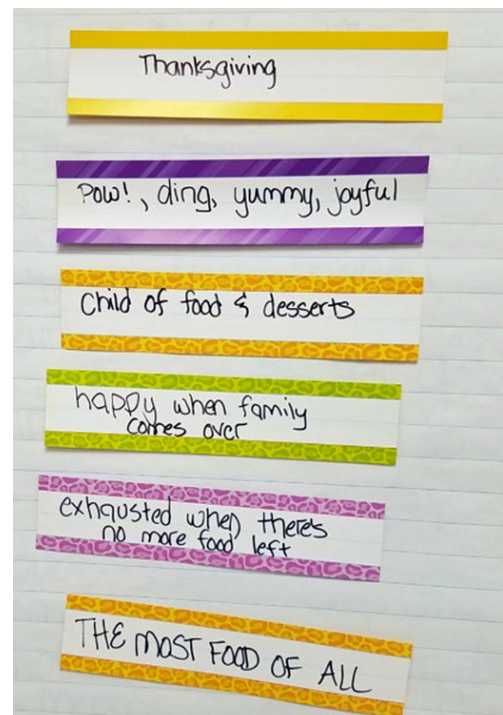 Thanksgiving
Pow!, ding, yummy, joyful
Child of food & desserts
happy when family
comes over
exhausted when there's
no more food left
THE MOST FOOD OF ALL